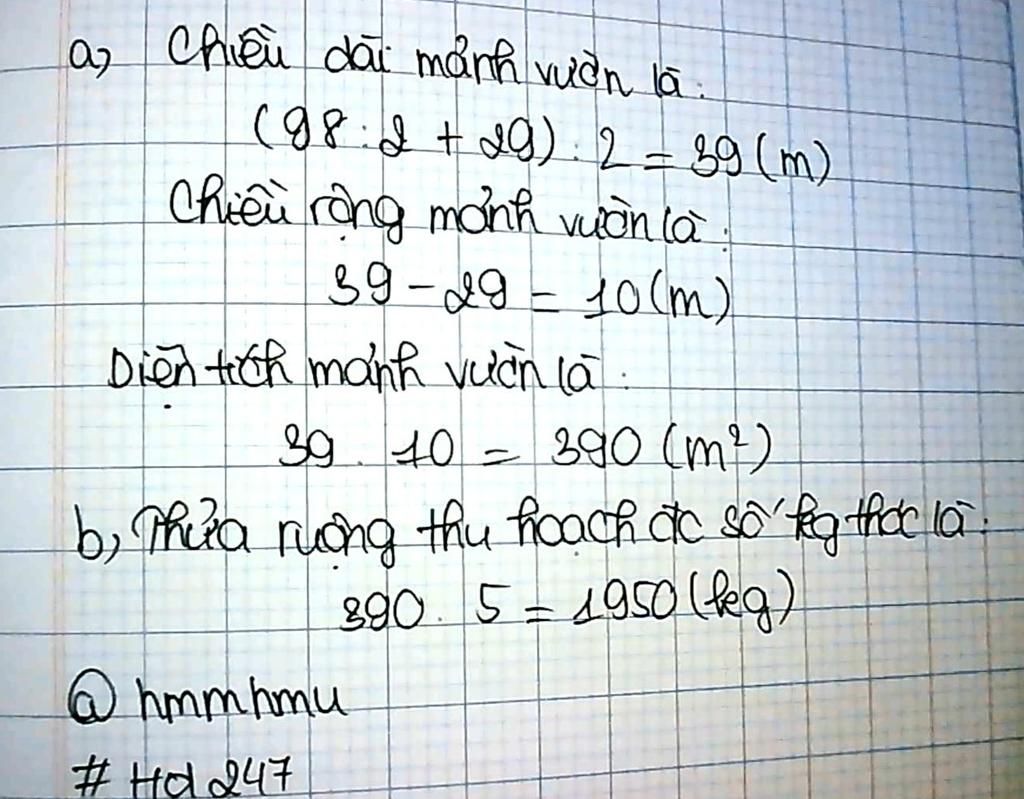 a, Chiều dài mảnh vườn là:
(98 : 2 + 29) : 2 = 39 (m)
Chiều rộng mảnh vườn là:
39 - 29 = 10 (m)
Diện tích mảnh vườn là:
39 . 10 = 390 (m²)
b, Thửa ruộng thu hoạch đc số kg thóc là:
390 . 5 = 1950 (kg)
@ hmmhmu
# Hd247